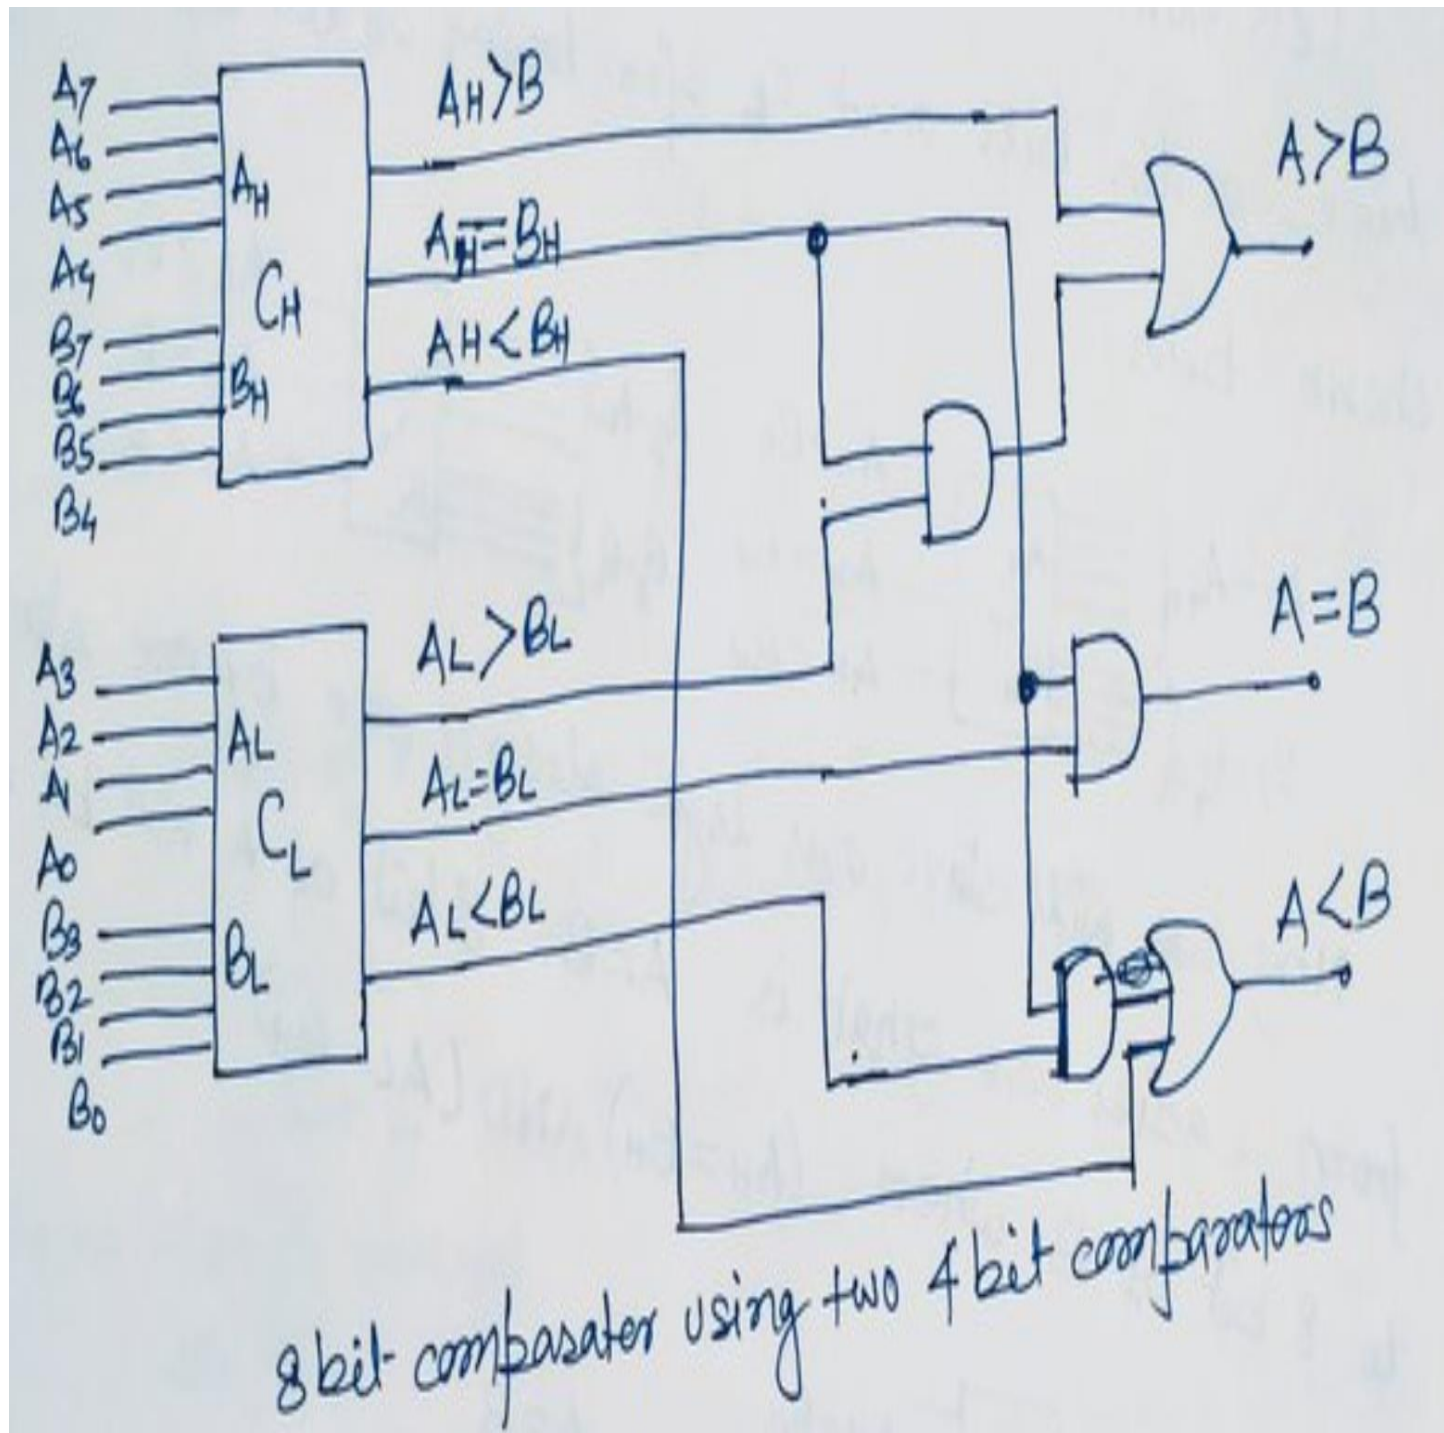 A7
A6
A5
A4
B7
B6
B5
B4
AH
CH
BH
AH>B
AH=BH
AH<BH
A>B
A3
A2
A1
A0
B3
B2
B1
B0
AL
CL
BL
AL>BL
AL=BL
AL<BL
A=B
A<B
8 bit compasater using two 4 bit comparators